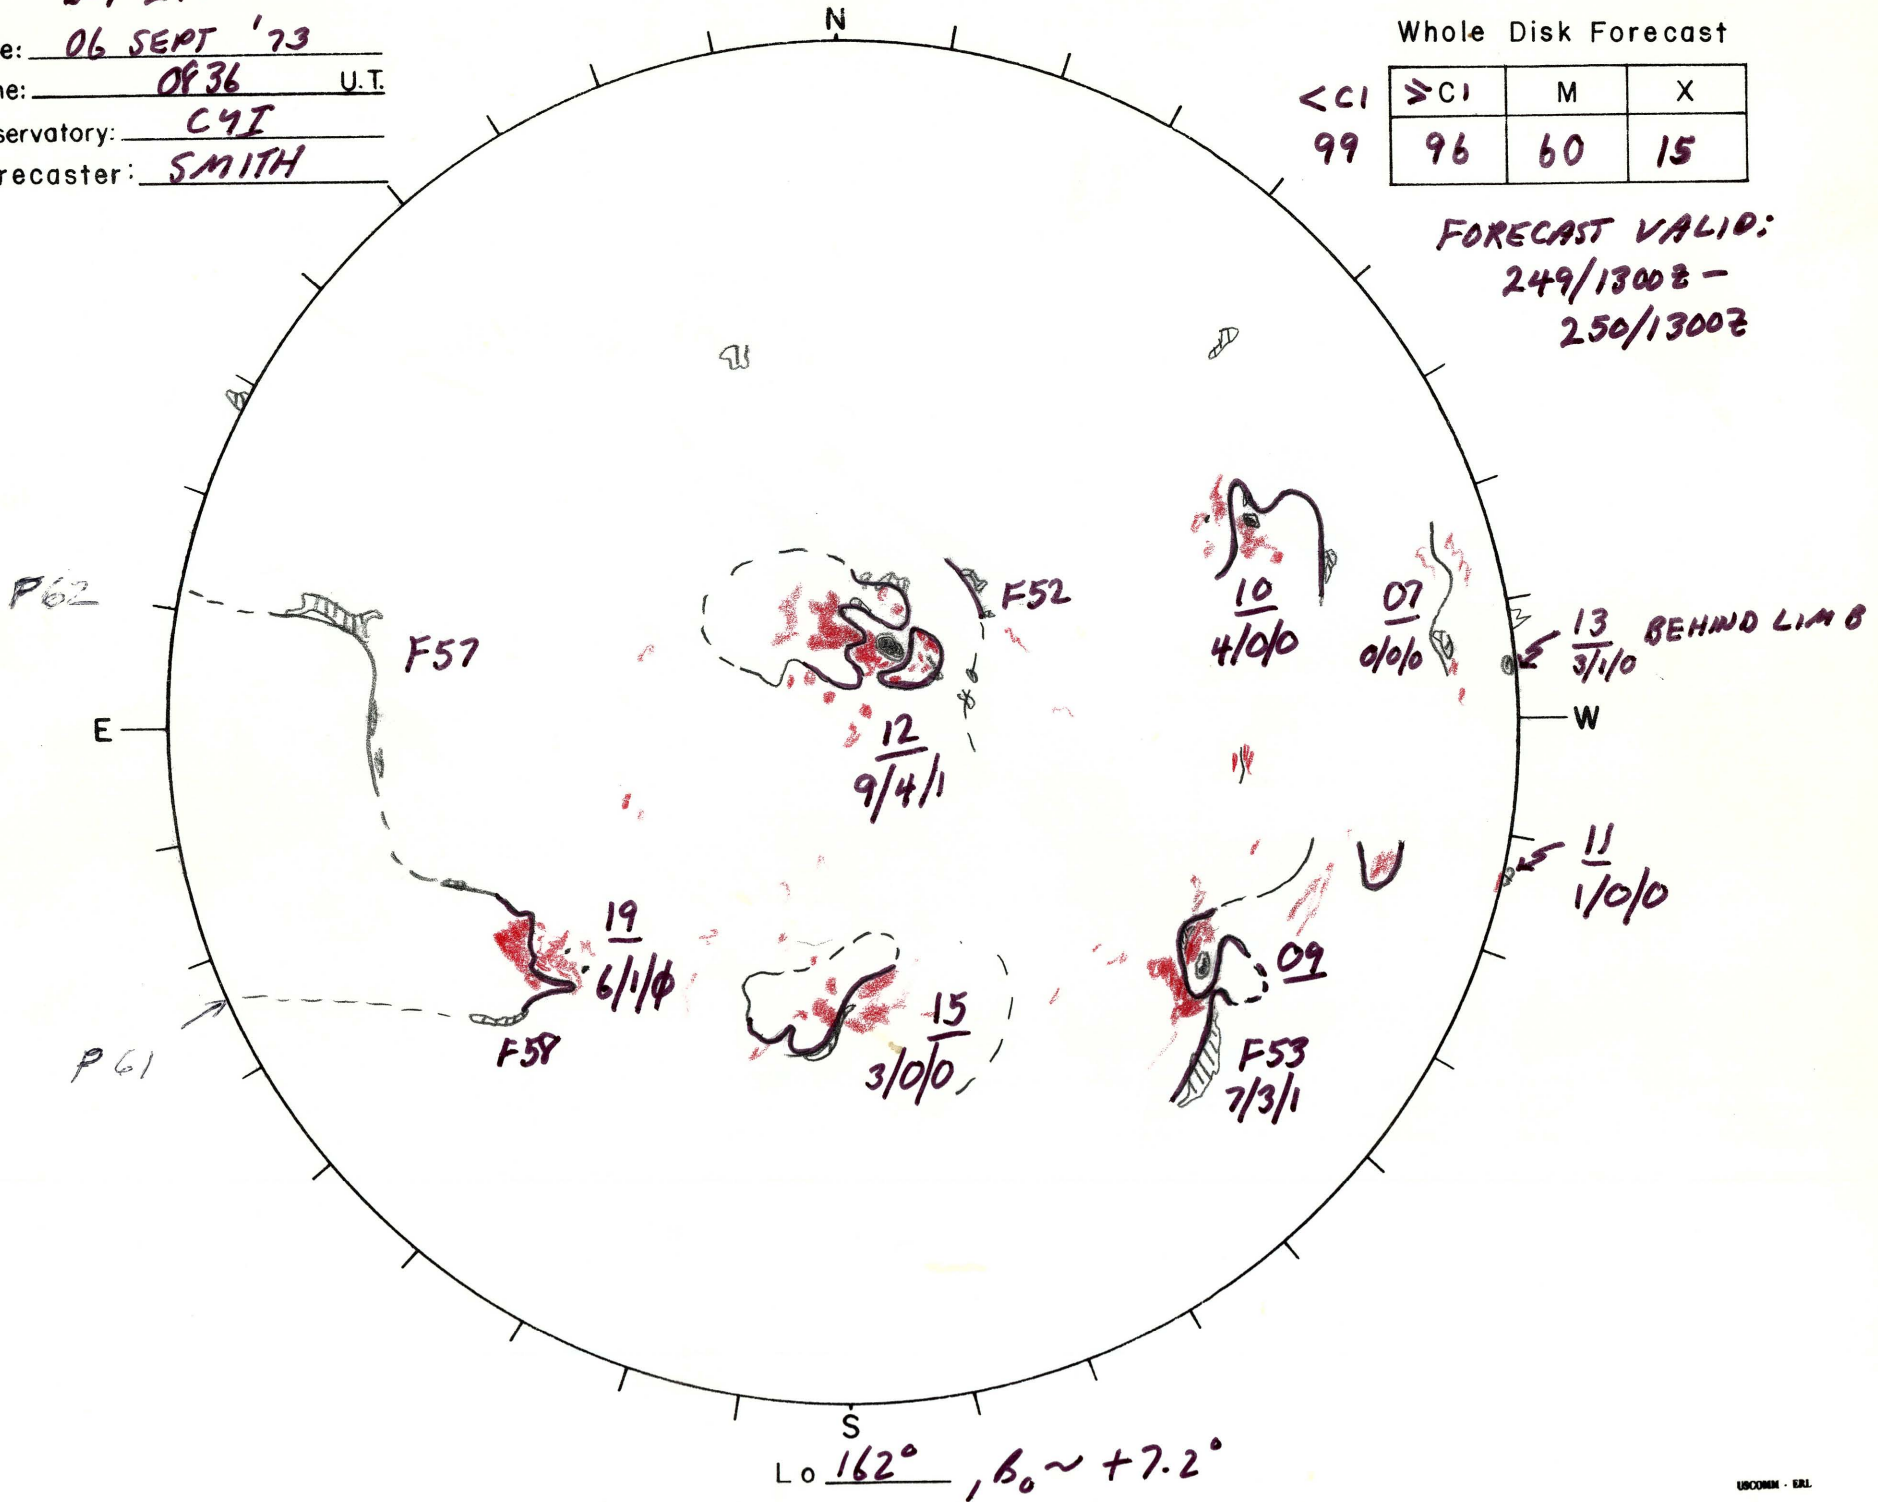 e: 06 SEPT '73
ne: 0836 U.T.
servatory: CYI
recaster: SMITH
N
Whole Disk Forecast
<C1 ≥C1 M X
99 96 60 15
FORECAST VALID:
249/1300Z -
250/1300Z
P62
F57
F52
10
4/0/0
07
0/0/0
13 BEHIND LIMB
3/1/0
E
W
12
9/4/1
11
1/0/0
19
6/1/0
09
15
3/0/0
F58
P61
F53
7/3/1
S
Lo 162°, B₀ ~ +7.2°
USCOMM - ERL